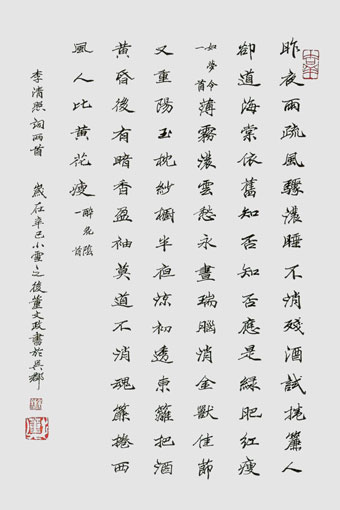 昨夜雨疏風驟濃睡不消殘酒試捲簾人
卻道海棠依舊知否知否應是綠肥紅瘦
如夢令一首 薄霧濃雲愁永晝瑞腦消金獸佳節
又重陽玉枕紗櫥半夜涼初透東籬把酒
黃昏後有暗香盈袖莫道不消魂簾捲西
風人比黃花瘦 醉花陰一首
李清照詞兩首 歲在辛巳小雪之後董文政書於吳鄉